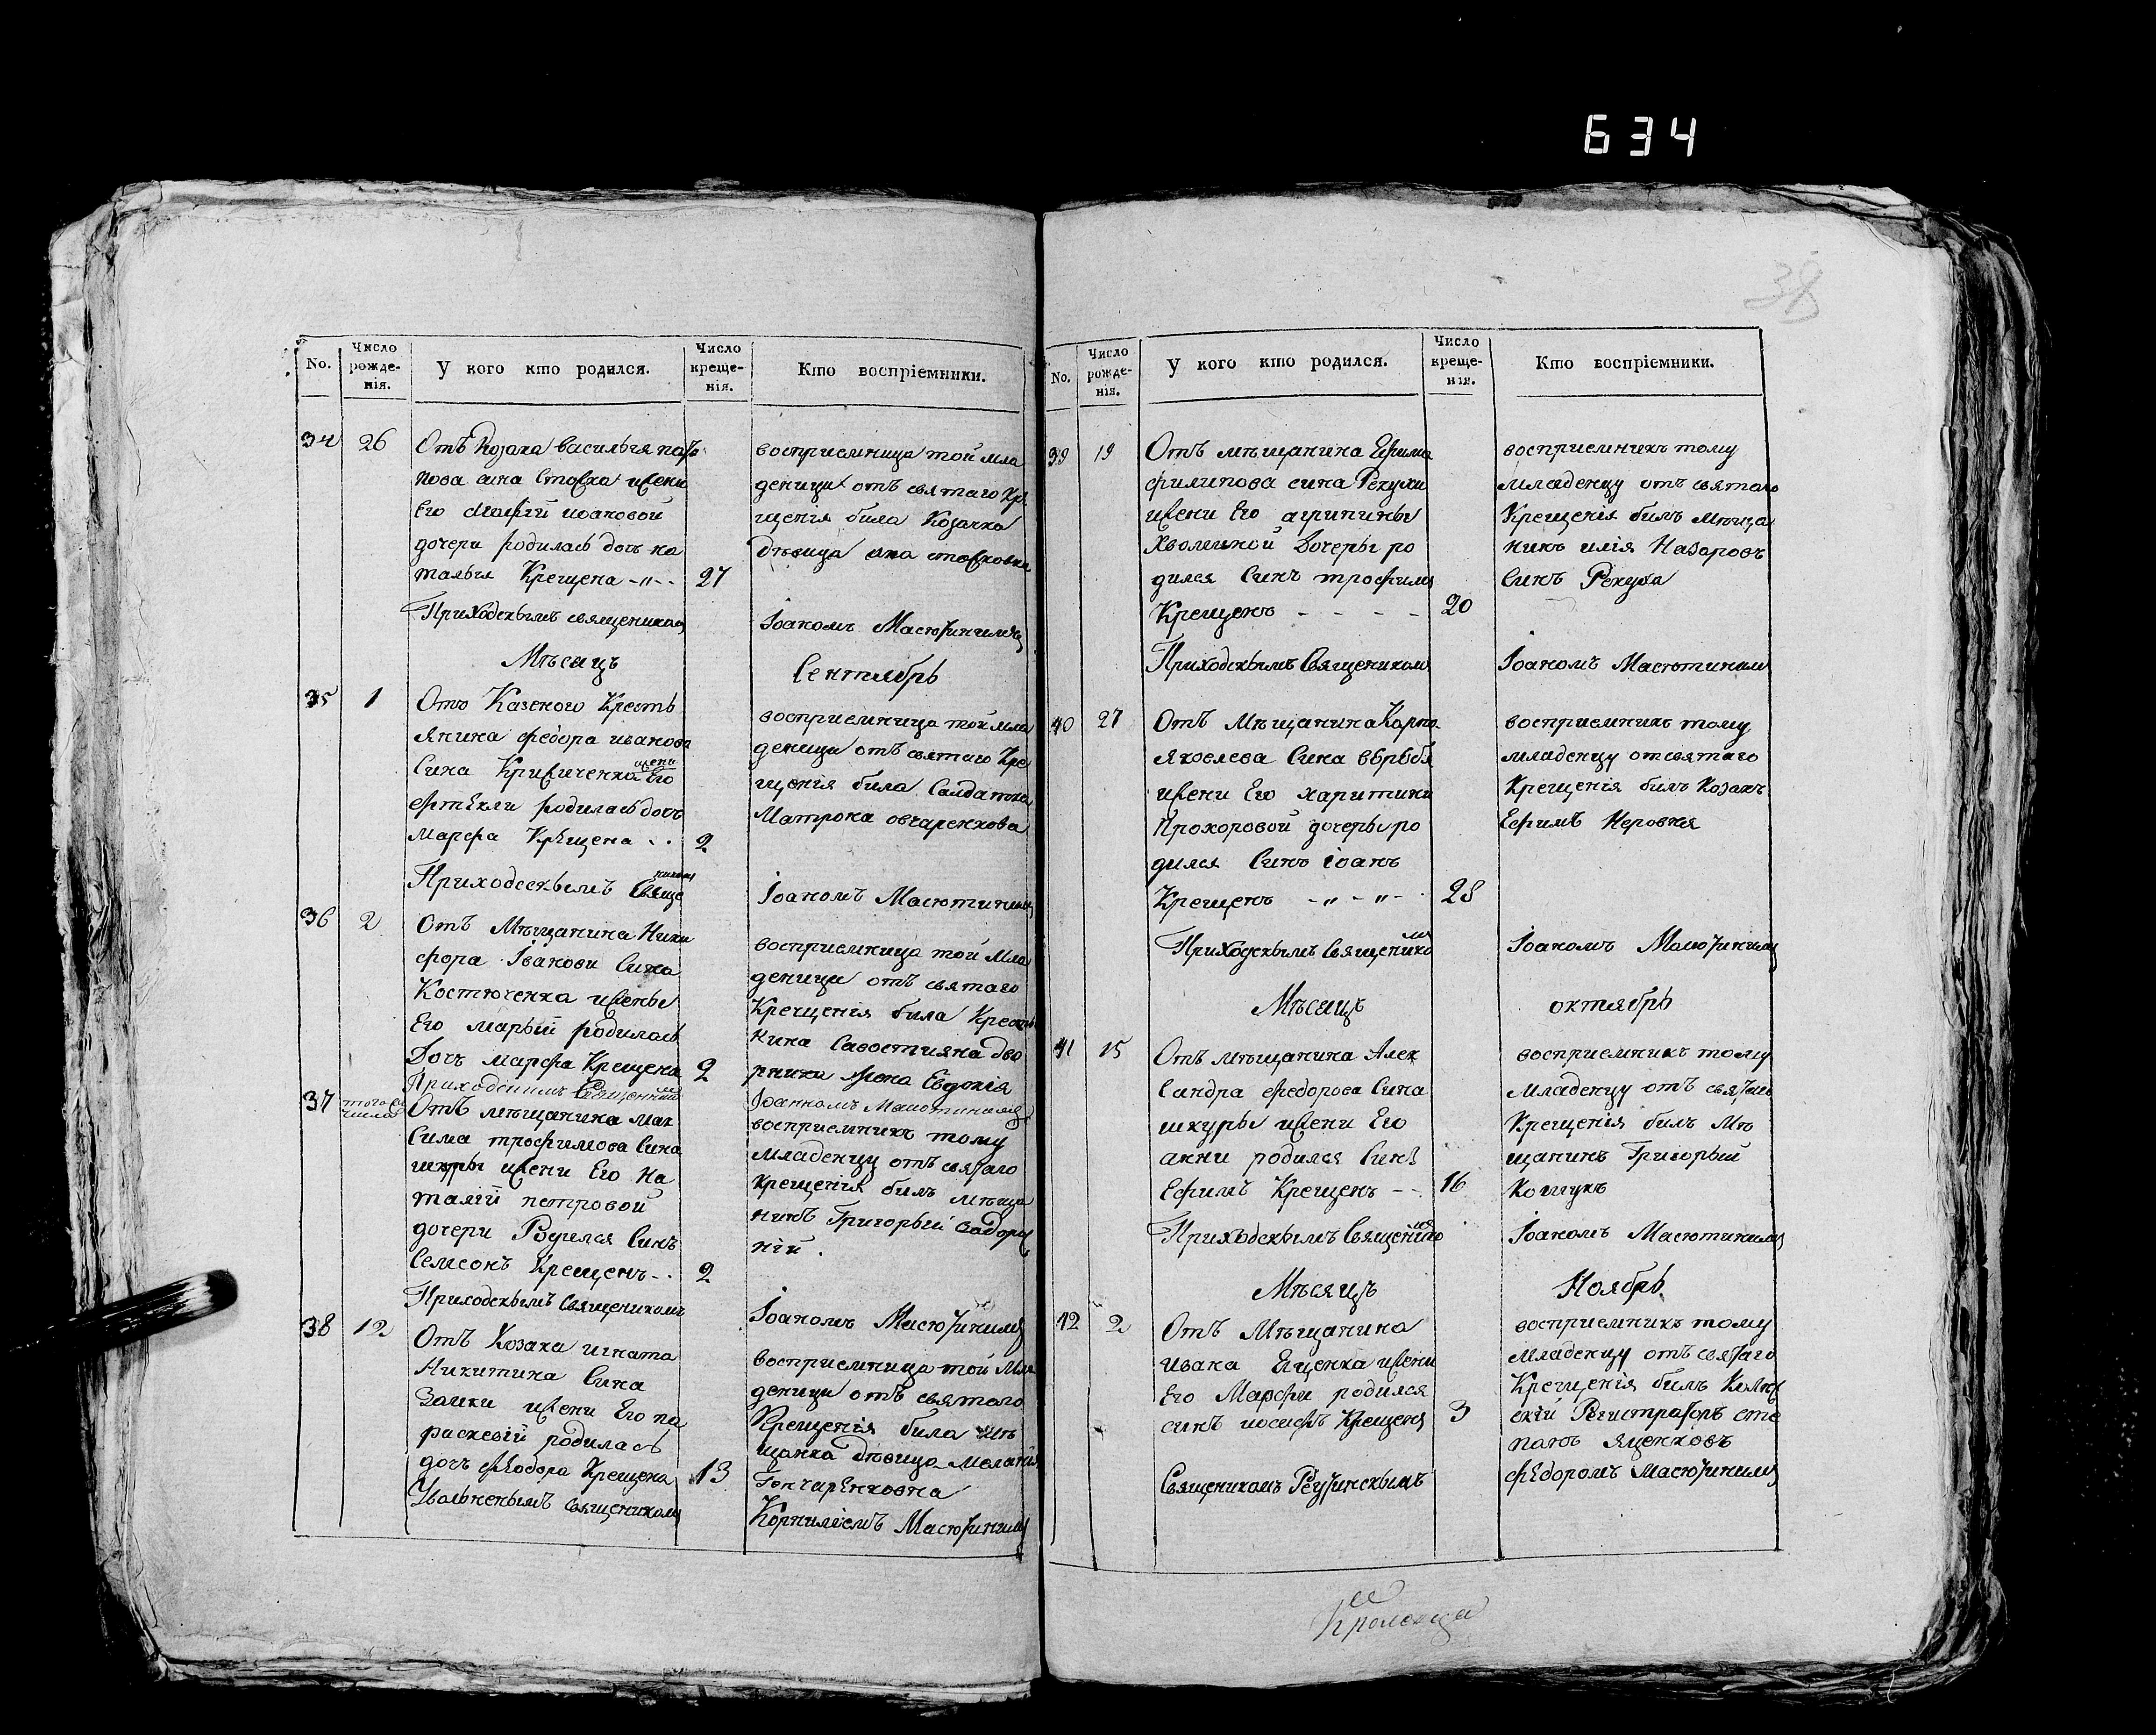 634
38
No.
Число рожде-нія.
У кого кто родился.
Число креще-нія.
Кто воспріемники.
34 26
Отъ Козака василья пар
пова сина Стовха жени
Его Мафій ивановой
дочери родилась дочь на
талья Крещена 27
Приходскымъ священикомъ
восприемница той мла
деници отъ святаго Кре
щенія била Козачка
дѣвица
Іоаномъ Масютинимъ
Мѣсяцъ
Сентябрь
35 1
Отъ Казеного Кресть
янина федора иванова
Сина Кривиченка жени Его
фтекли родилась дочь
Марфа Крещена 2
Приходсскымъ Свяще
никомъ
восприемница той мла
деници отъ святаго Кре
щенія била Салдатка
Матрона овчаренкова
Іоаномъ Масютинимъ
36 2
Отъ Мѣщанина Ники
фора Іванови Сина
Костюченка жены
Его марьій родилась
Дочъ марфа Крещена 2
Приходскимъ Священикомъ
восприемница той мла
деници отъ святаго
Крещенія била Кресть
нина Савостияна дво
рника жена Евдокія
Іоанномъ Масютинимъ
37 тогожъ числа
Отъ мѣщанина Мак
Сима трофимова Сина
шкуры жени Его На
талій петровой
дочери Родился Синъ
Семсонъ Крещенъ 2
Приходскымъ Священикомъ
восприемникъ тому
младенцу отъ святаго
крещенія билъ мѣща
нинъ Григорый Задорож
ній.
Іоаномъ Масютинимъ
38 12
Отъ Козака игната
Никитина Сина
Заики жени Его па
раскевій родилась
дочъ феодора Крещена 13
Увольненымъ Священикомъ
восприемница той мла
деници отъ святого
Крещенія била мѣ
щанка дѣвица Меланія
Гончаренковна
Корниліемъ Масютинимъ
No.
Число рожде-нія.
У кого кто родился.
Число креще-нія.
Кто воспріемники.
39 19
Отъ мѣщанина Ефима
филипова сина Рекухи
жени Его агрипины
Хвоминой Дочеры ро
дился Синъ трофимъ
Крещенъ 20
Приходскымъ Священикомъ
восприемникъ тому
младенцу отъ святаго
Крещенія билъ Мѣща
нинъ илія Назаровъ
Синъ Рекуха
Іоаномъ Масютинимъ
40 27
Отъ Мѣщанина Карпа
Яковлева Сина
жени Его харитини
Прохоровой дочеры ро
дился Синъ іоанъ
Крещенъ 28
Приходскымъ Священико
мъ
восприемникъ тому
младенцу отсвятаго
Крещенія билъ Козакъ
Ефимъ Неровня
Іоаномъ Масютинимъ
Мѣсяцъ
октябрь
41 15
Отъ мѣщанина Алек
Сандра федорова Сина
шкуры жени Его
анни родился Синъ
Ефимъ Крещенъ 16
Приходскымъ Священико
мъ
восприемникъ тому
Младенцу отъ святаго
Крещенія билъ Мѣ
щанинъ Григорый
Кошукъ
Іоаномъ Масютинимъ
Мѣсяцъ
Ноябрь
42 2
Отъ Мѣщанина
ивана Ещенка жени
Его Марфи родился
синъ иосифъ Крещенъ 3
Священикомъ Реутинскымъ
восприемникъ тому
Младенцу отъ святаго
Крещенія билъ Колеж
скій Регистраторъ сте
панъ яценковъ
федоромъ Масютинимъ